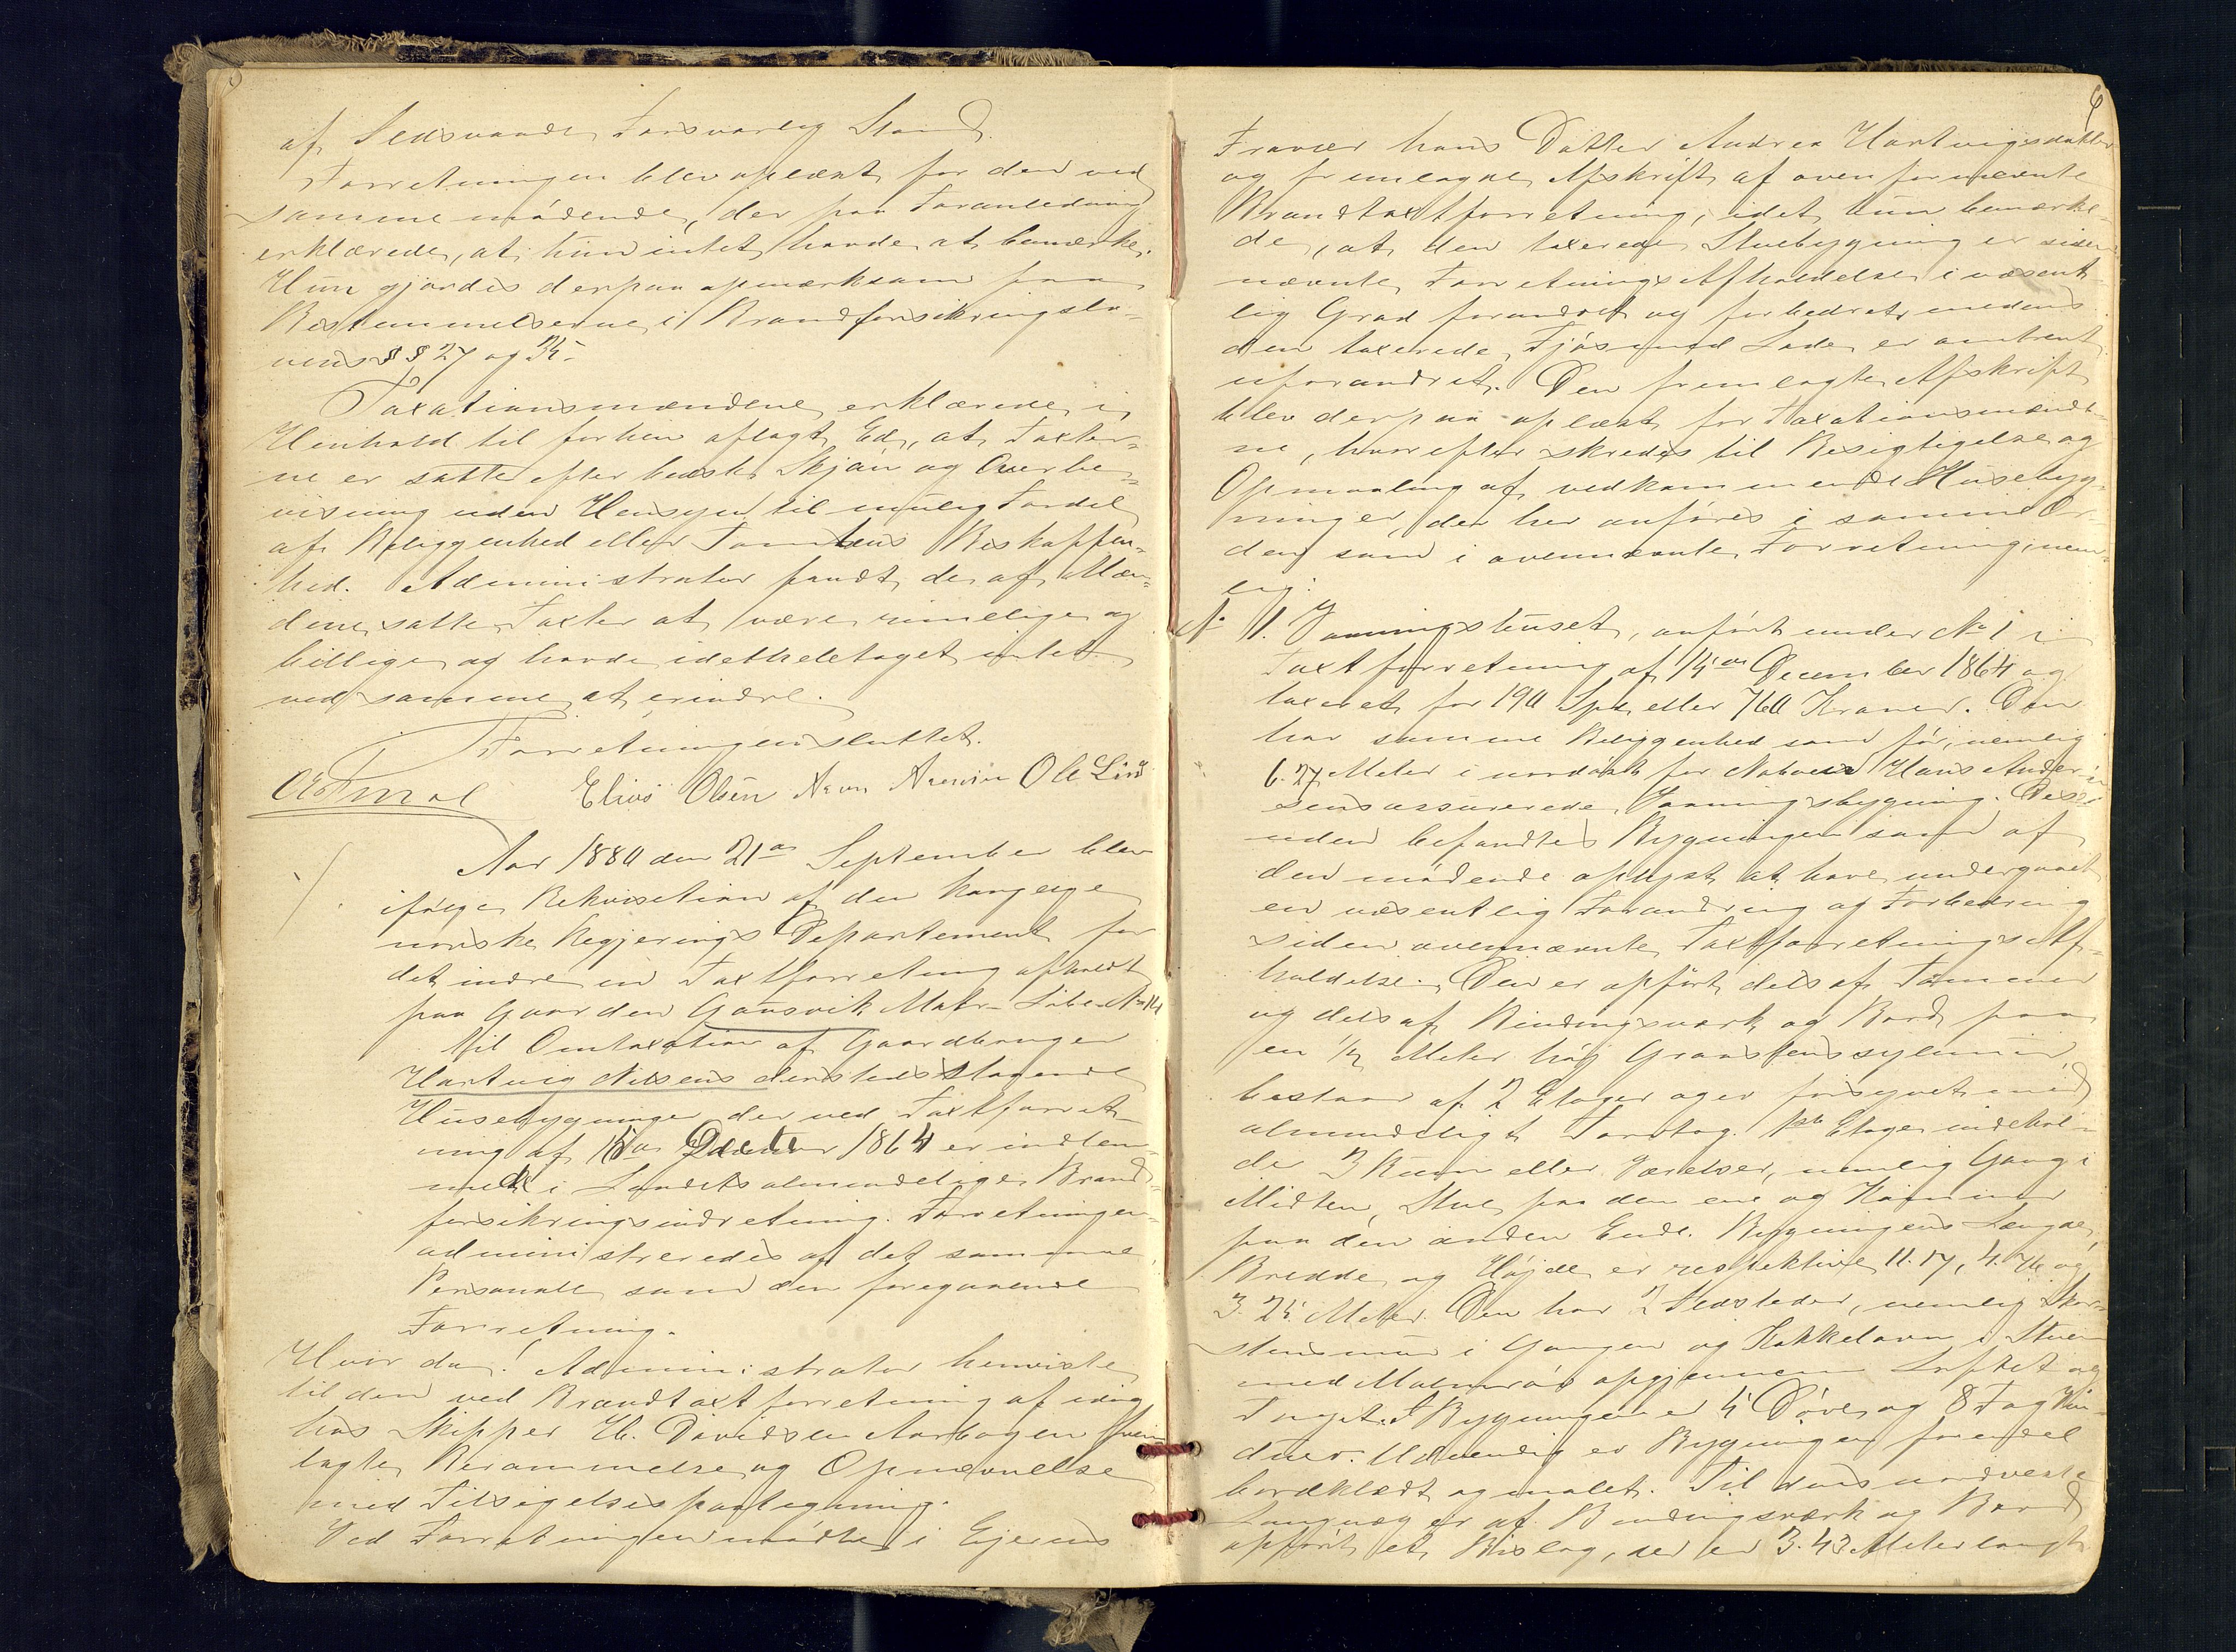 af Ildsvaade, forsvarlig Stand.
Forretningen blev oplæst for den ved
samme mødende, der paa Foranledning
erklærede, at hun intet havde at bemærke.
Hun gjordes derpaa opmærksom paa
Bestemmelserne i Brandforsikringslo-
vens §§ 27 og 35.
Taxationsmændene erklærede i
Henhold til forhen aflagt Ed, at Taxter-
ne er satte efter bedste Skjøn og Overbe-
visning uden Hensyn til mulig Fordel
af Beliggenhed eller Tomtens Beskaffen-
hed. Administrator fandt de af Mæn-
dene satte Taxter at være rimelige og
billige og havde idethele taget intet
ved samme at erindre.
Forretningen sluttet.
Elias Olsen Ole Lind
Aar 1880 den 21de September blev
ifølge Rekvisition af den kongelige
norske Regjerings Departement for
det indre en Taxtforretning afholdt
paa Gaarden Gausvik Matr. Løbe No 14
til Omtaxation af Gaardbruger
Hartvig Nilsens dersteds staaende
Husebygninger, der ved Taxtforret-
ning af 15de December 1864 er indlem-
met i Landets almindelige Brand-
forsikringsindretning. Forretningen
administreredes af det samme
Personale som den foregaaende
Forretning.
Hvor da! Administrator henviste
til den ved Brandtaxtforretning af idag
hos Skipper H. Davidsen Aarbogen frem-
lagte Berammelse og Opnævnelse
med Tilsigelsespaategning.
Ved Forretningen mødte i Ejerens
6
Fravær hans Datter Andrea Hartvigsdatter
og fremlagde Afskrift af ovenfornævnte
Brandtaxtforretning, idet hun bemærke-
de, at den taxerede Stuebygning er siden
nævnte Forretnings Afholdelse i væsent-
lig Grad forandret og forbedret, medens
den taxerede Fjøs med Lade er omtrent
uforandret. Den fremlagte Afskrift
blev derpaa oplæst for Taxationsmænde-
ne, hvorefter skredes til Besigtigelse og
Opmaaling af vedkommende Husebyg-
ninger, der her anføres i samme Or-
den som i ovennævnte Forretning, nem-
lig:
No 1. Vaaningshuset, anført under No 1 i
Taxtforretning af 15de December 1864 og
taxeret for 190 Spd. eller 760 Kroner. Den
har samme Beliggenhed som før, nemlig
6.27 Meter i nordost for Naboens Hans Ander-
sens assurerede Vaaningsbygning. Des-
uden befandtes Bygningen som af
den mødende oplyst at have undergaaet
en væsentlig Forandring og Forbedring
siden ovennævnte Taxtforretnings Af-
holdelse. Den er opført dels af Tømmer
og dels af Bindingsværk og Bord paa
en ½ Meter høj Graastenssylemur
bestaar af 2 Etager og er forsynet med
almindeligt Torvtag. 1ste Etage indehol-
der 3 Rum eller Værelser, nemlig Gang i
Midten, Stue paa den ene og Kammer
paa den anden Ende. Bygningens Længde,
Bredde og Højde er respektive 11.17, 4.76 og
3.25 Meter. Den har 2 Ildsteder, nemlig Skor-
stensmur i Gangen og Kakkelovn i Stuen
med Malmrør opgjennem Loftet og
Taget. I Bygningen er 5 Døre og 8 Fag Vin-
duer. Udvendig er Bygningen forendel
bordklædt og malet. Til dens nordvestre
Langvæg er af Bindingsværk og Bord
opført et Bislag, der er 3.43 Meter langt